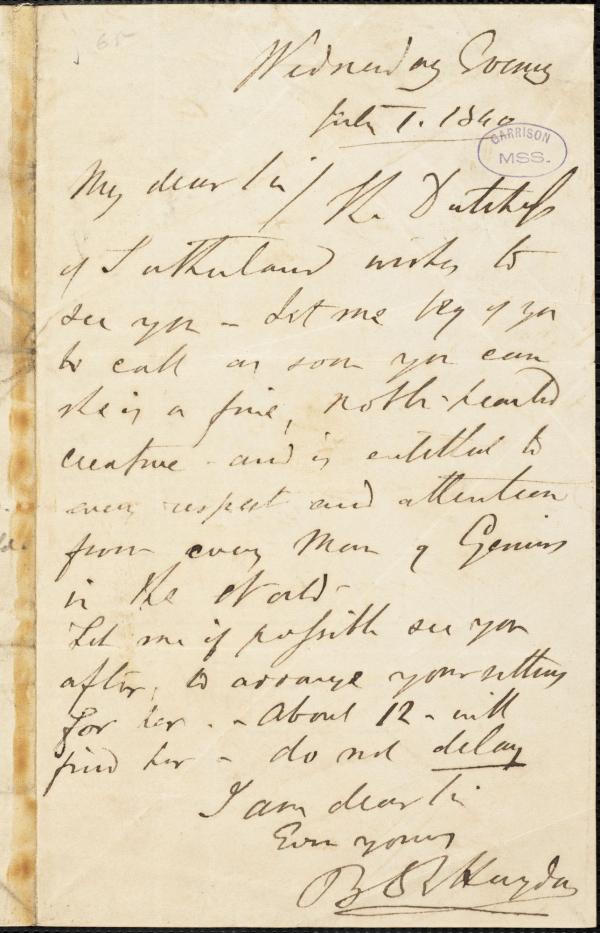 65
Wednesday Evening
July 1. 1840
GARRISON
MSS.
My dear Sir / The Dutchess
of Sutherland wishes to
see you – Let me beg of you
to call as soon you can
she is a fine, noble-hearted
creature – and is entitled to
every respect and attention
from every Man of Genius
in the World –
Let me if possible see you
after, to arrange your sitting
for her . – About 12 – will
find her – do not delay
I am dear Sir
Ever yours
B R Haydon